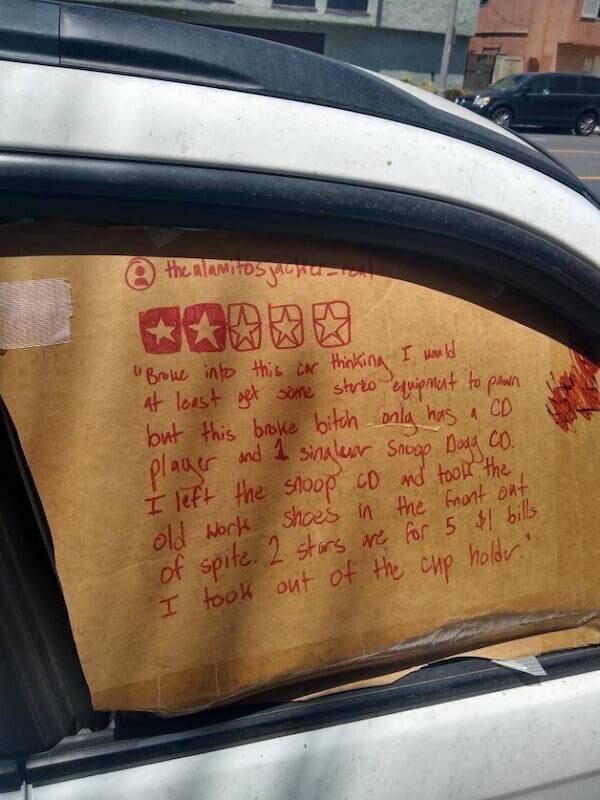 thealamitosjacker_real
"Broke into this car thinking I would
at least get some stereo equipment to pawn
but this broke bitch only has a CD
player and 1 singluar Snoop Dogg CD.
I left the snoop CD and took the
old work shoes in the front out
of spite. 2 stars are for 5 $1 bills
I took out of the cup holder."